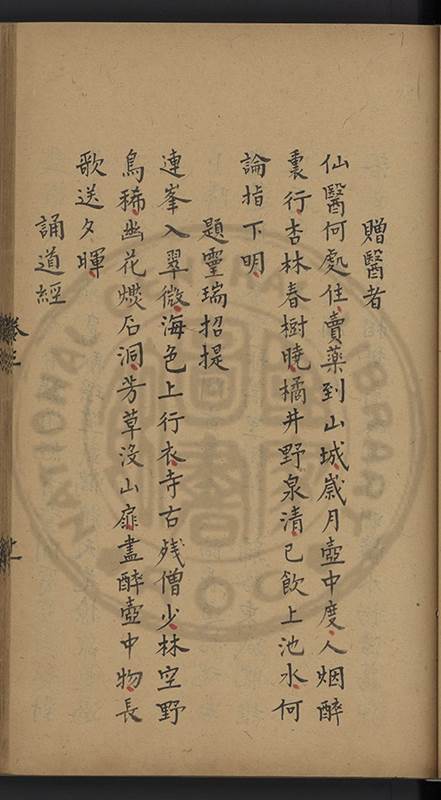 贈醫者
仙醫何處住賣藥到山城歲月壺中度人烟醉
裏行杏林春樹曉橘井野泉清已飲上池水何
論指下明
題靈瑞招提
連峯入翠微海色上行衣寺古殘僧少林空野
鳥稀幽花燃石洞芳草沒山扉盡醉壺中物長
歌送夕暉
誦道經
卷三
上